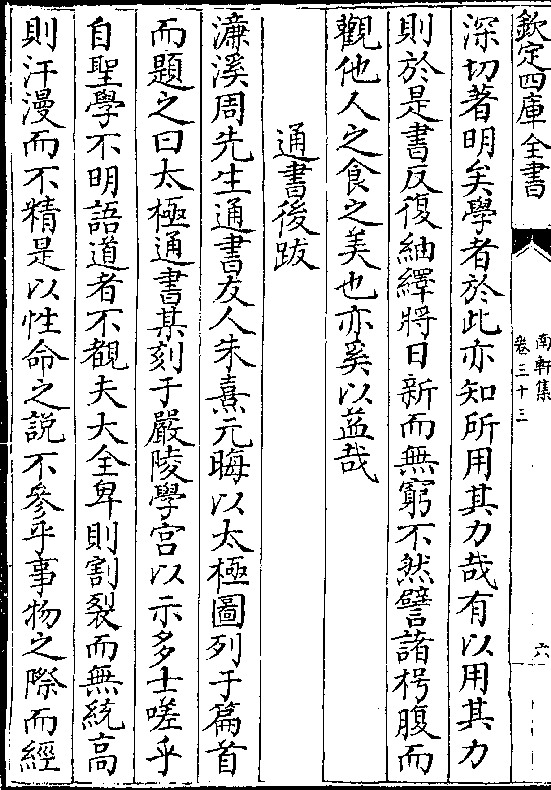 欽定四庫全書
南軒集
卷三十三
六
深切著明矣學者於此亦知所用其力哉有以用其力
則於是書反復紬繹將日新而無窮不然譬諸枵腹而
觀他人之食之美也亦奚以益哉
通書後跋
濂溪周先生通書友人朱熹元晦以太極圖列于篇首
而題之曰太極通書某刻于嚴陵學宫以示多士嗟乎
自聖學不明語道者不覩夫大全卑則割裂而無統高
則汗漫而不精是以性命之說不參乎事物之際而經